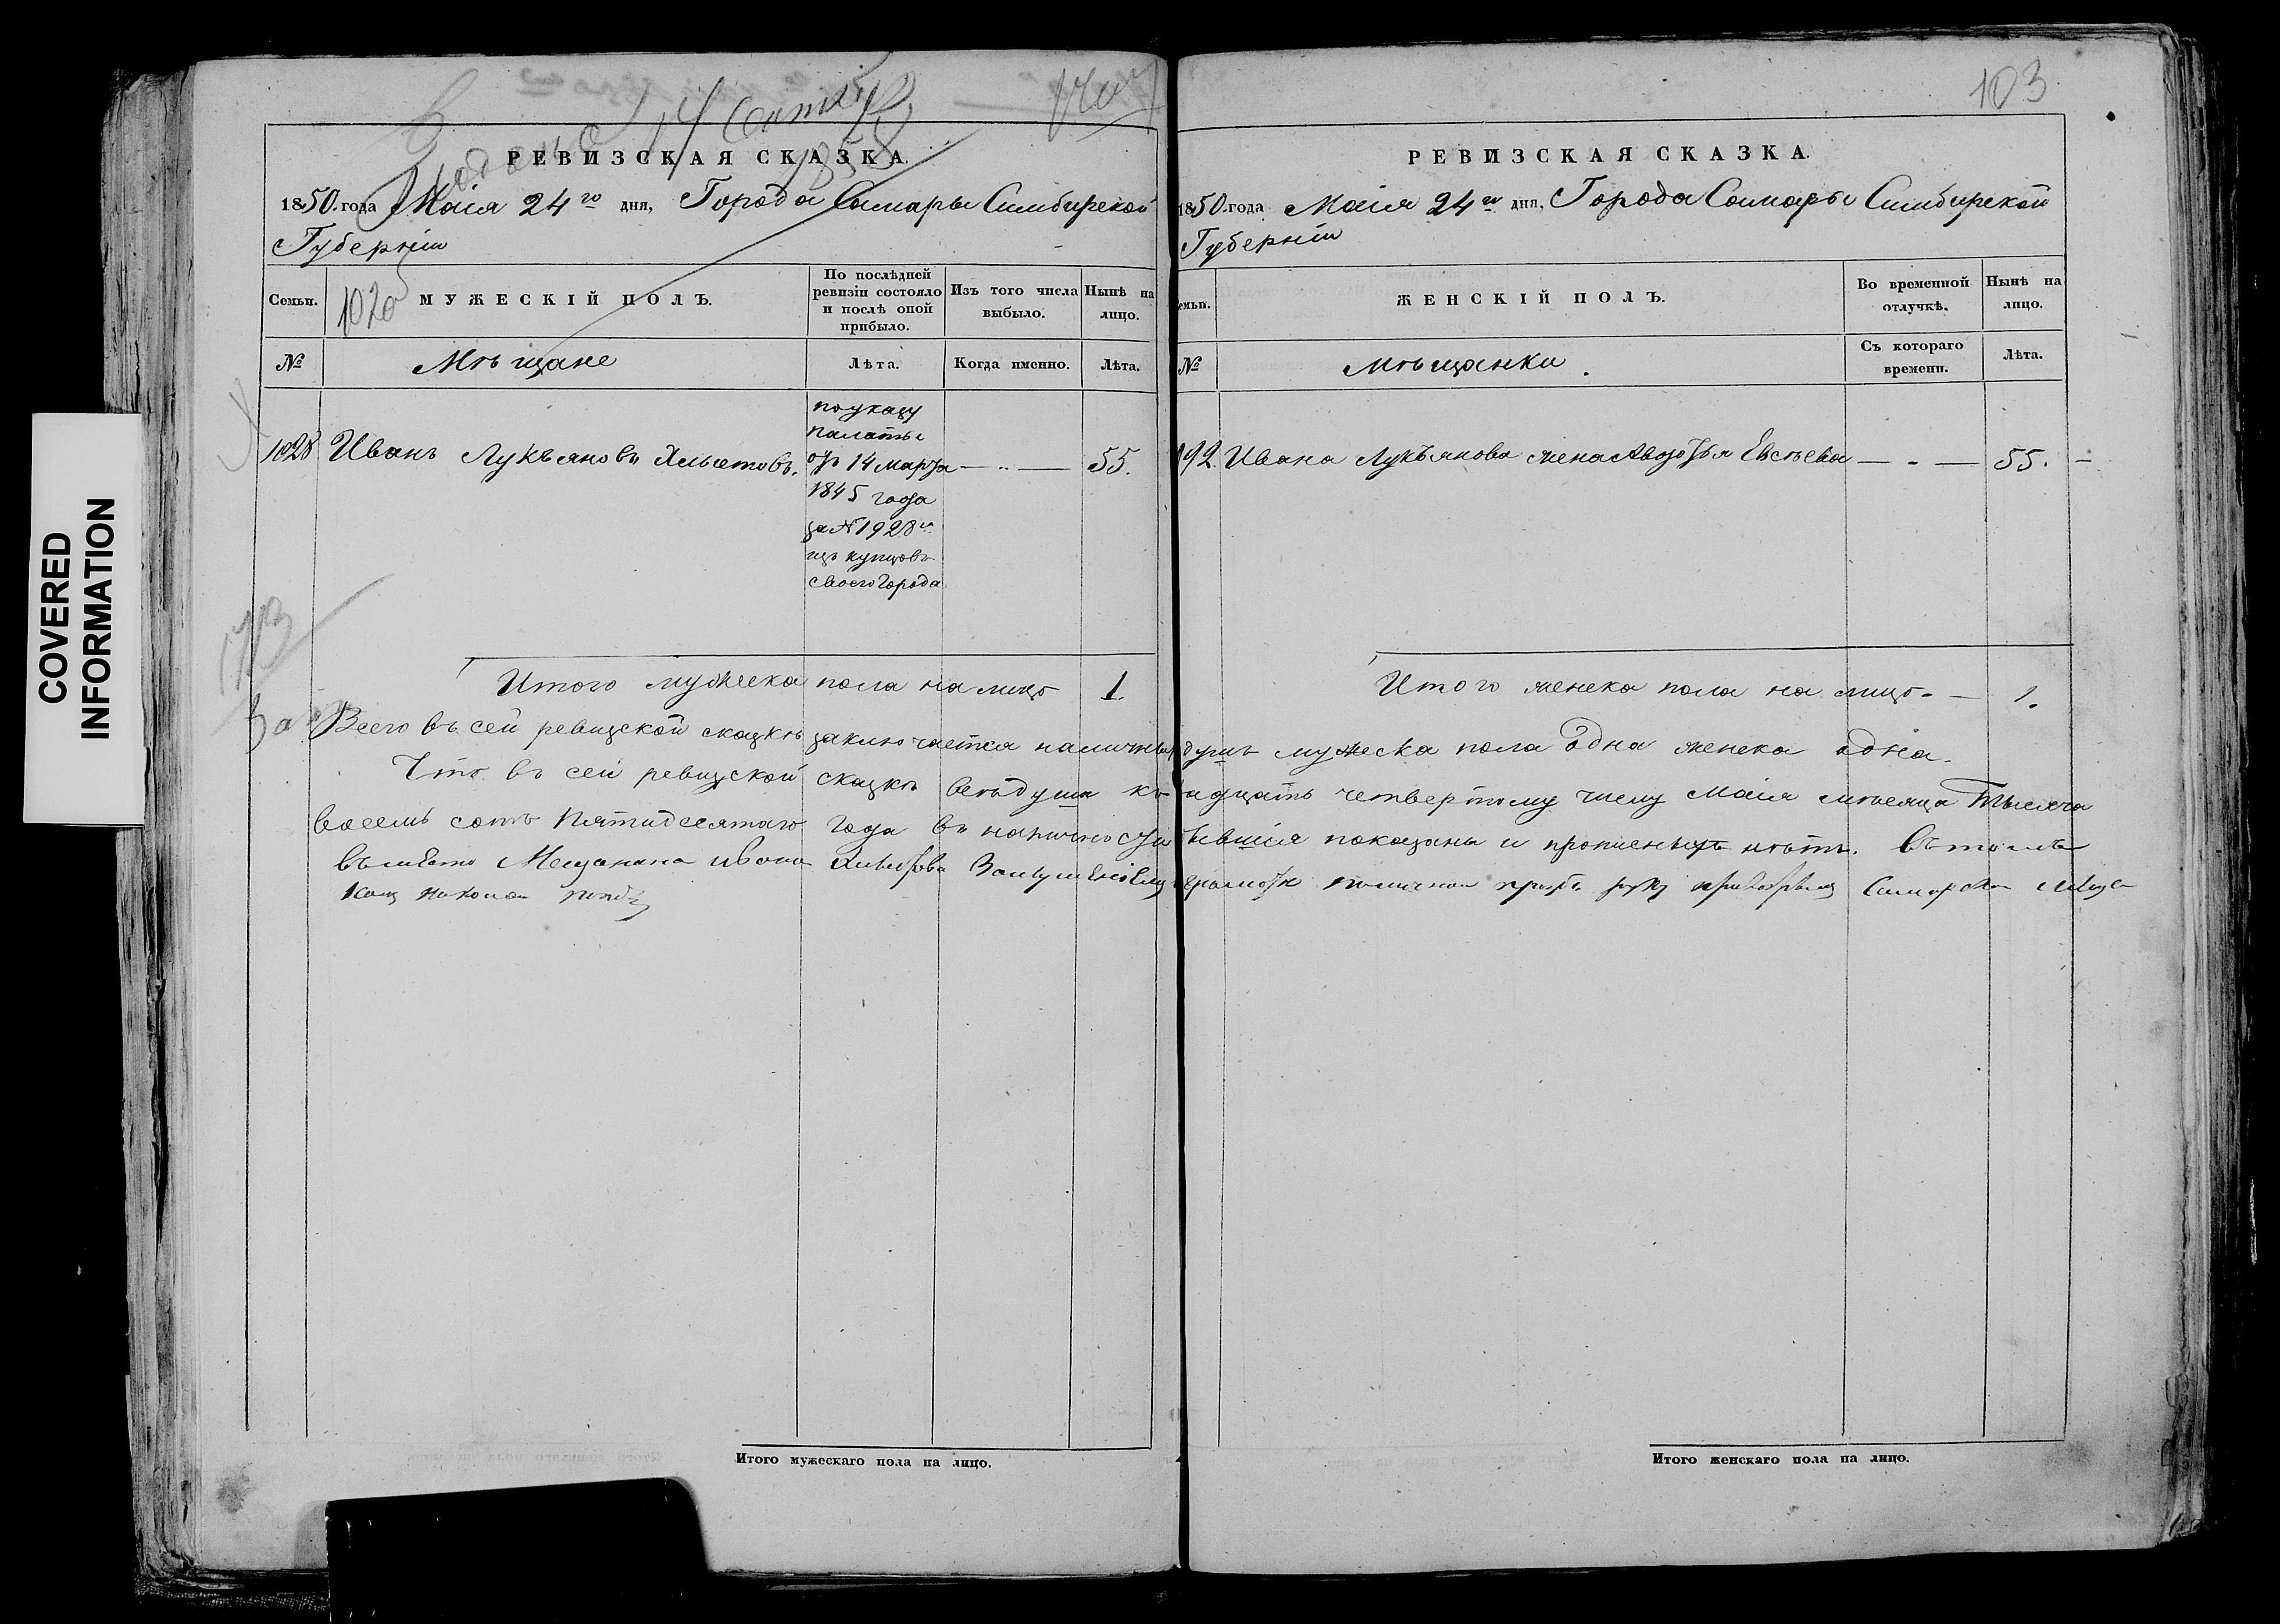 103
РЕВИЗСКАЯ СКАЗКА.
1850. года Маія 24го дня, Города Самары Симбирской
Губерніи
Семьи.
1028
МУЖЕСКІЙ ПОЛЪ.
По послѣдней
ревизіи состояло
и послѣ оной
прибыло.
Изъ того числа
выбыло.
Нынѣ на
лицо.
№
Мѣщане
Лѣта.
Когда именно.
Лѣта.
1028 Иванъ Лукъяновъ
по указу
палаты
отъ 14 марта
1845 года
за № 1928м
изъ купцовъ
своего города
55.
Итого мужеска пола на лицо 1.
РЕВИЗСКАЯ СКАЗКА.
1850. года Маія 24го дня, Города Самары Симбирской
Губерніи
емьи.
ЖЕНСКІЙ ПОЛЪ.
Во временной
отлучкѣ.
Нынѣ на
лицо.
№
Мѣщанки.
Съ котораго
времени.
Лѣта.
192. Ивана Лукъянова жена Авдотья 55.
Итого женска пола на лицо 1.
Всего въ сей ревизской сказкѣ заключается наличныхъ душъ мужеска пола одна женска одна.
Что въ сей ревизской сказкѣ всѣ души къ двадцать четвертому числу Маія мѣсяца Тысяча
восемь сотъ Пятидесятаго года въ наличности бывшія показаны и прописныхъ нѣтъ. Въ томъ
въместо Мещанина Ивана
Итого мужескаго пола на лицо.
Итого женскаго пола на лицо.
COVERED
INFORMATION